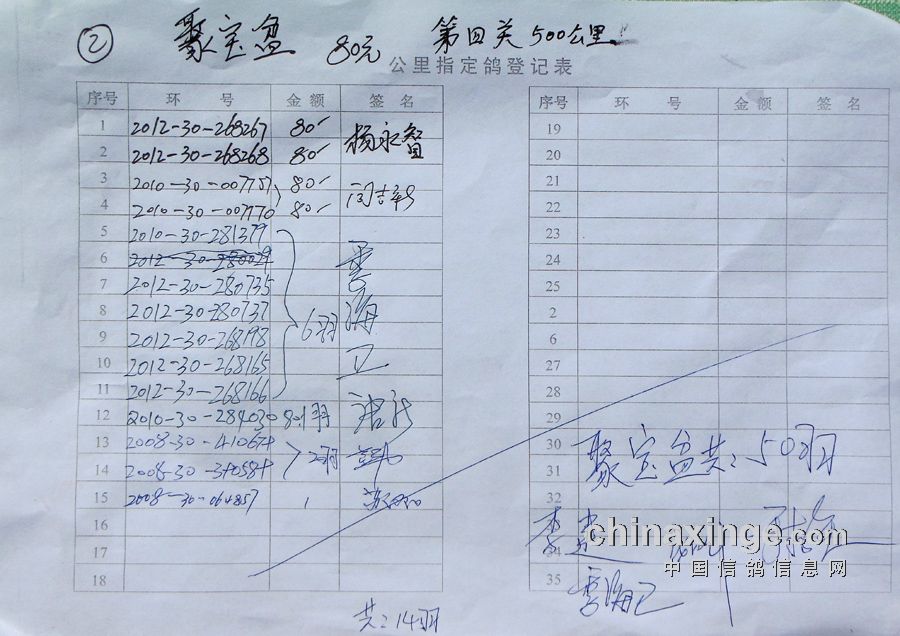 ② 聚宝盆 80元 第四关 500公里
公里指定鸽登记表
序号 环 号 金 额 签 名
1 2012-30-268267 80 杨永智
2 2012-30-268268 80
3 2010-30-007757 80
4 2010-30-007770 80
5 2010-30-281379
6 2012-30-280029
7 2012-30-280735
8 2012-30-280737 6羽
9 2012-30-268198
10 2012-30-268165
11 2012-30-268166
12 2010-30-284030 80 1羽
13 2008-30-410674
14 2008-30-340584 2羽
15 2008-30-064857 1
16
17
18
共:14羽
序号 环 号 金 额 签 名
19
20
21
22
23
24
25
2
6
27
28
29
30
31
32
34
35
聚宝盆共:50羽
chinaxinge.com
中国信鸽信息网